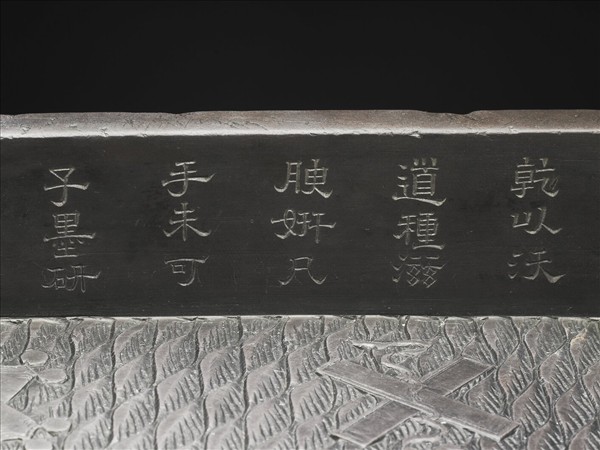 乾以沃
道種滋
腴妍凡
手未可
子墨研